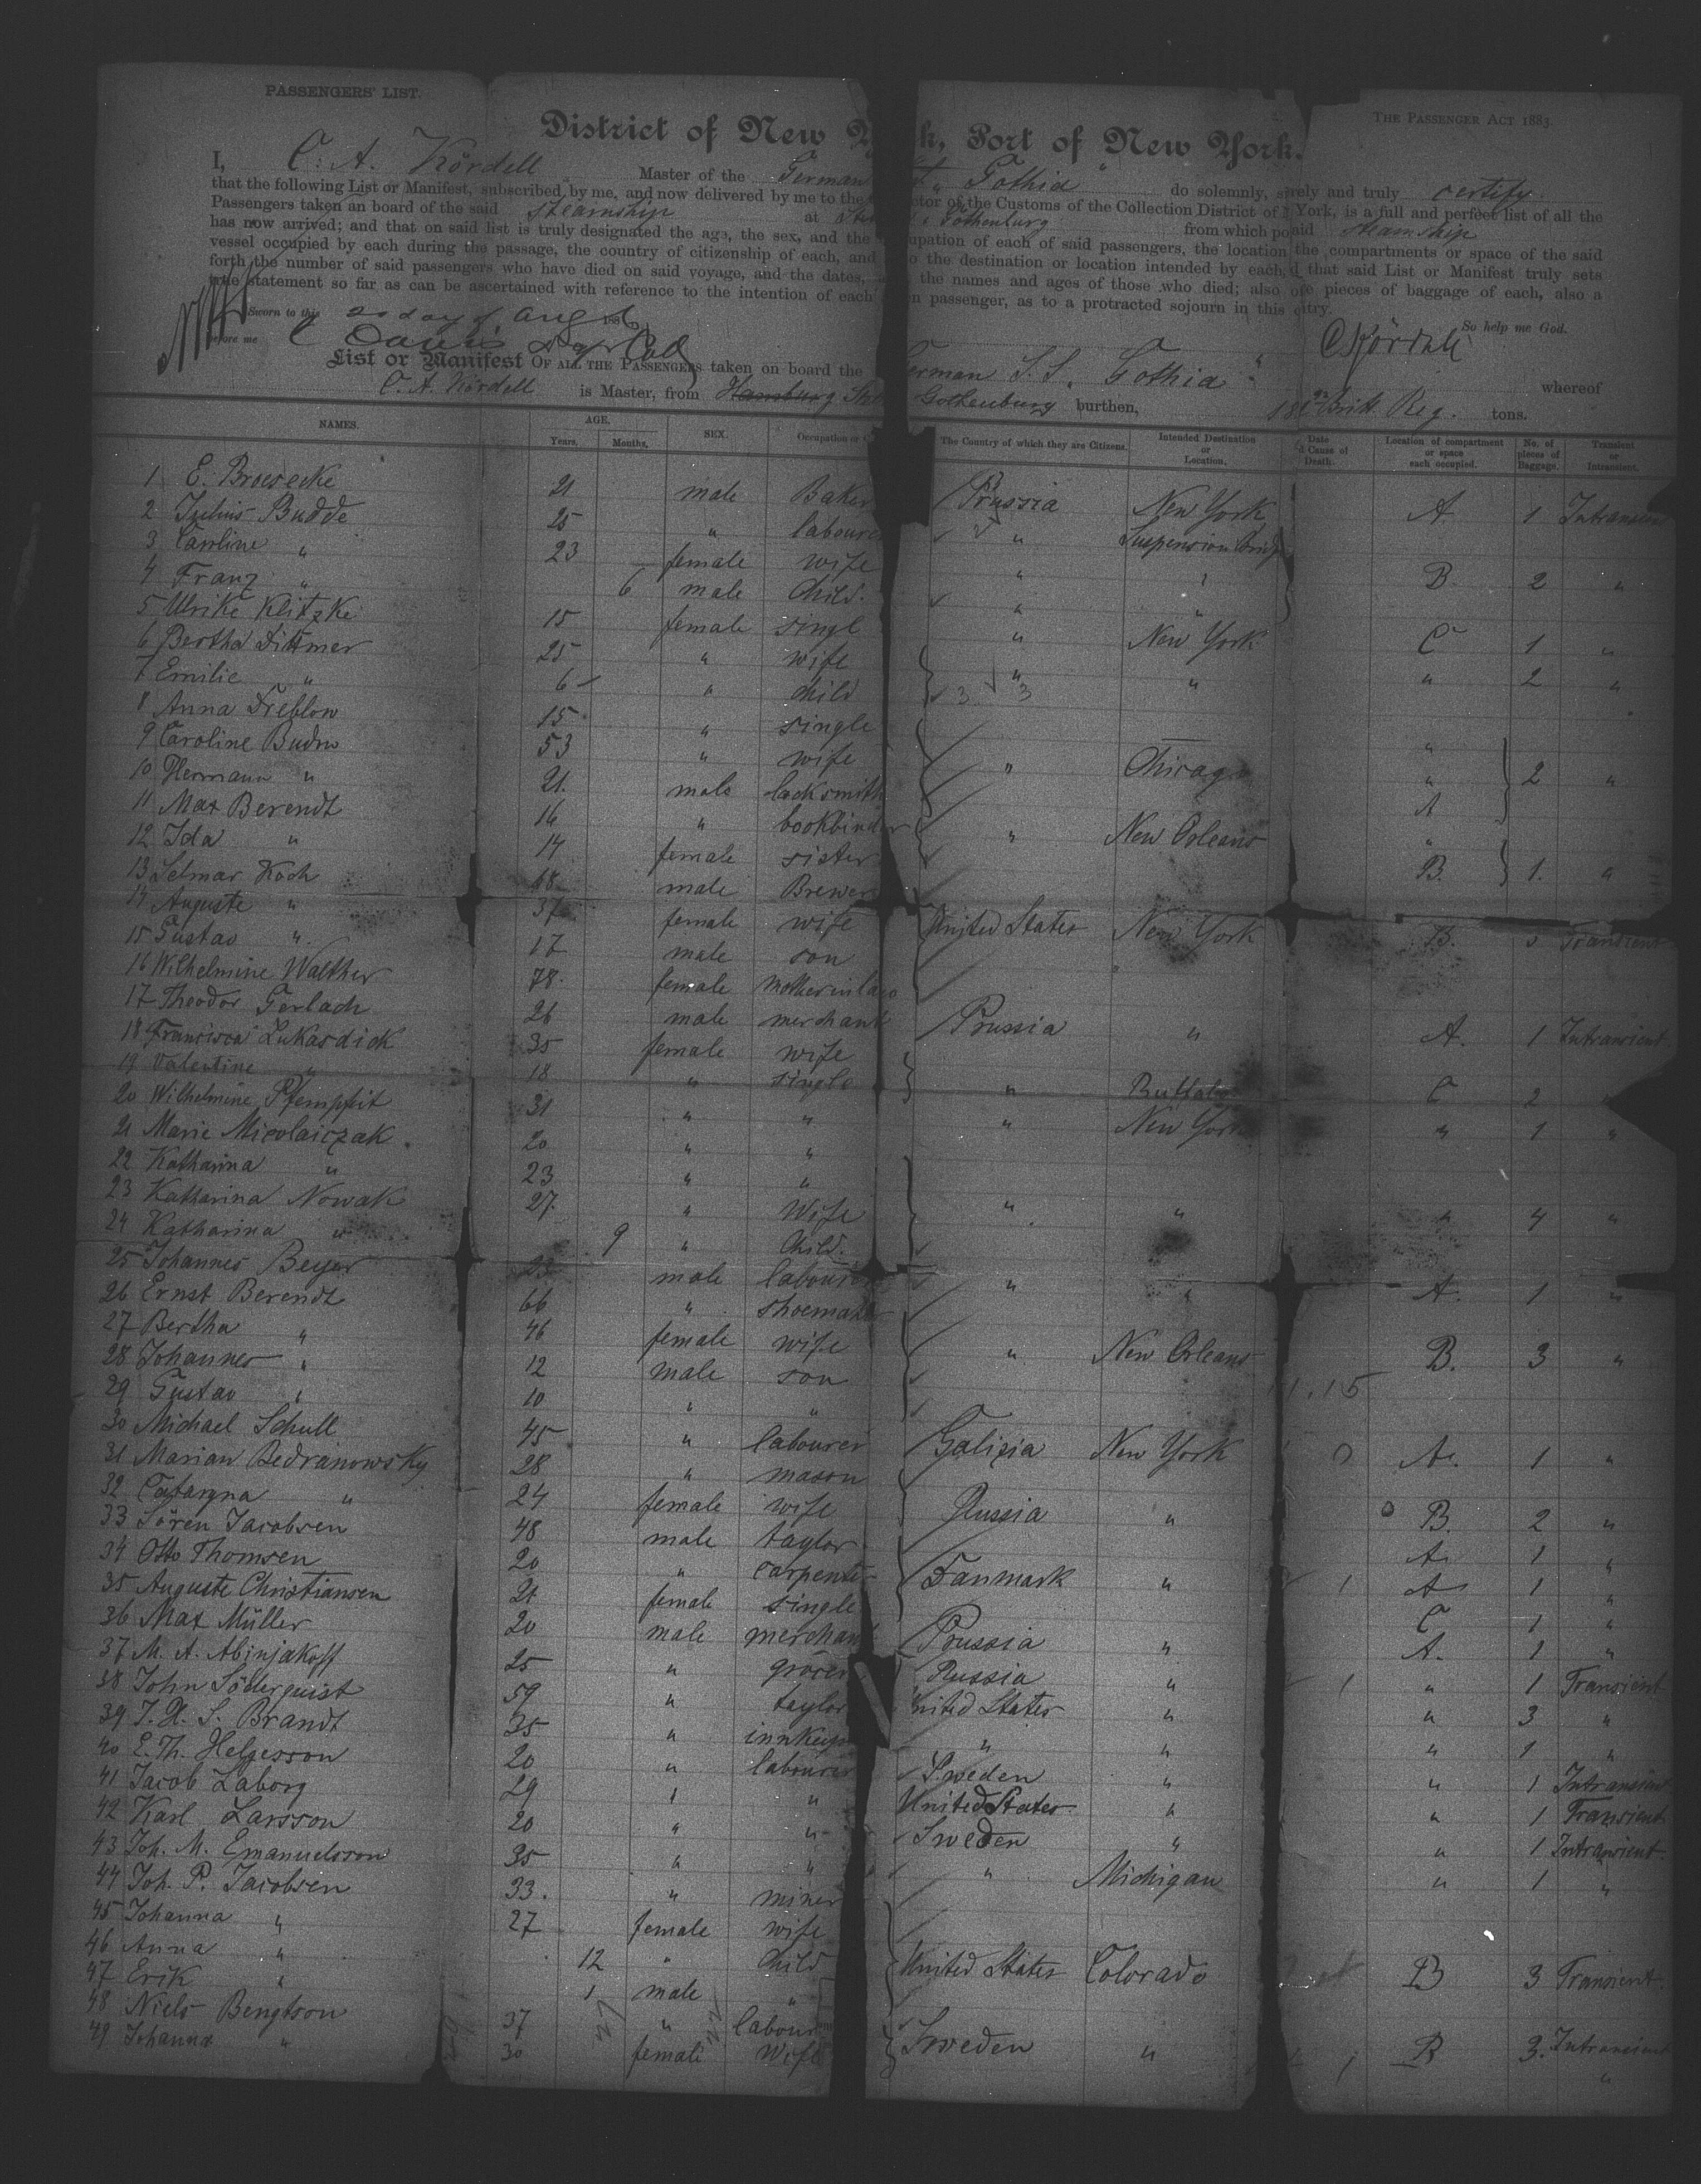 PASSENGERS' LIST.
THE PASSENGER ACT 1883.
District of New Y k, Port of New York.
I, C. A. Kördell Master of the German " Gothia " do solemnly, s rely and truly certify
that the following List or Manifest, subscribed by me, and now delivered by me to the ctor of the Customs of the Collection District of York, is a full and perfect list of all the
Passengers taken an board of the said steamship at Gothenburg from which po aid steamship
has now arrived; and that on said list is truly designated the age, the sex, and the upation of each of said passengers, the location the compartments or space of the said
vessel occupied by each during the passage, the country of citizenship of each, and o the destination or location intended by each, d that said List or Manifest truly sets
forth the number of said passengers who have died on said voyage, and the dates, the names and ages of those who died; also pieces of baggage of each, also a
true statement so far as can be ascertained with reference to the intention of each n passenger, as to a protracted sojourn in this ntry.
So help me God.
Sworn to this 20 day of Aug 188
before me
C A Kördell
List or Manifest OF ALL THE PASSENGERS taken on board the German S.S. " Gothia " whereof
C. A. Kördell is Master, from Hamburg Gothenburg burthen, Britt Reg. tons.
NAMES. AGE. Years. Months. SEX. Occupation or C The Country of which they are Citizens. Intended Destination or Location. Date d Cause of Death. Location of compartment or space each occupied. No. of pieces of Baggage. Transient or Intransient.
1 E. Broesecke 21 male Baker Prussia New York A. 1 Intransien
2 Julius Budde 25 " laboure " Suspension Bridge
3 Caroline " 23 female wife " " B 2 "
4 Franz " 6 male Child. " "
5 Ulrike Klitzke 15 female singl " New York C 1 "
6 Bertha Dittmer 25 " wife " " " 2 "
7 Emilie " 6 " child
8 Anna Treblow 15 " single "
9 Caroline Budno 53 " wife " Chicago " 2 "
10 Hermann " 21. male lacksmith A
11 Max Berendt 16 " bookbinder " New Orleans "
12 Ida " 14 female sister B. 1. "
13 Selmar Koch 48 male Brewer
14 Auguste " 37 female wife United States New York B. 3 Transient
15 Gustav " 17 male son
16 Wilhelmine Walther 78. female Motherinlaw "
17 Theodor Gerlach 26 male merchant Prussia " A. 1 Intransient
18 Francisca Lukasdick 35 female wife
19 Valentine " 18 " single " Buffalo C 2 "
20 Wilhelmine Pfempfit 31 " " " New York " 1 "
21 Marie Micolaiczak 20 " "
22 Katharina " 23 " "
23 Katharina Nowak 27. " Wife " " " 4 "
24 Katharina " 9 " Child.
25 Johannes Beyer 23 male labourer " " A. 1 "
26 Ernst Berendt 66 " shoemaker
27 Bertha " 46 female wife " New Orleans B. 3 "
28 Johannes " 12 male son
29 Gustav " 10 " "
30 Michael Schull 45 " labourer Galizia New York A. 1 "
31 Marian Bedranowsky 28 " mason
32 Catargna " 24 female wife Russia " B. 2 "
33 Sören Jacobsen 48 male taylor A. 1 "
34 Otto Thomsen 20 " carpenter Danmark " A 1 "
35 Auguste Christiansen 21 female single C 1 "
36 Max Müller 20 male merchant Prussia " A. 1 "
37 M. A. Abinjakoff 25 " grocer Russia " " 1 Transient
38 John Söderquist 59 " taylor United States " " 3 "
39 J. H. S. Brandt 35 " innkeep " " " 1 "
40 E. Th. Helgesson 20 " labourer Sweden " " 1 Intransient
41 Jacob Laborg 29 " " United States " " 1 Transient
42 Karl Larsson 20 " " Sweden " " 1 Intransient
43 Joh. M. Emanuelsson 35 " " " Michigan " 1 "
44 Joh. P. Jacobsen 33. " miner
45 Johanna " 27 female wife
46 Anna " 12 " Child United States Colorado B 3 Transient
47 Erik " 1 male "
48 Niels Bengtson 37 " labour Sweden " B 3. Intransient
49 Johanna " 30 female Wife "